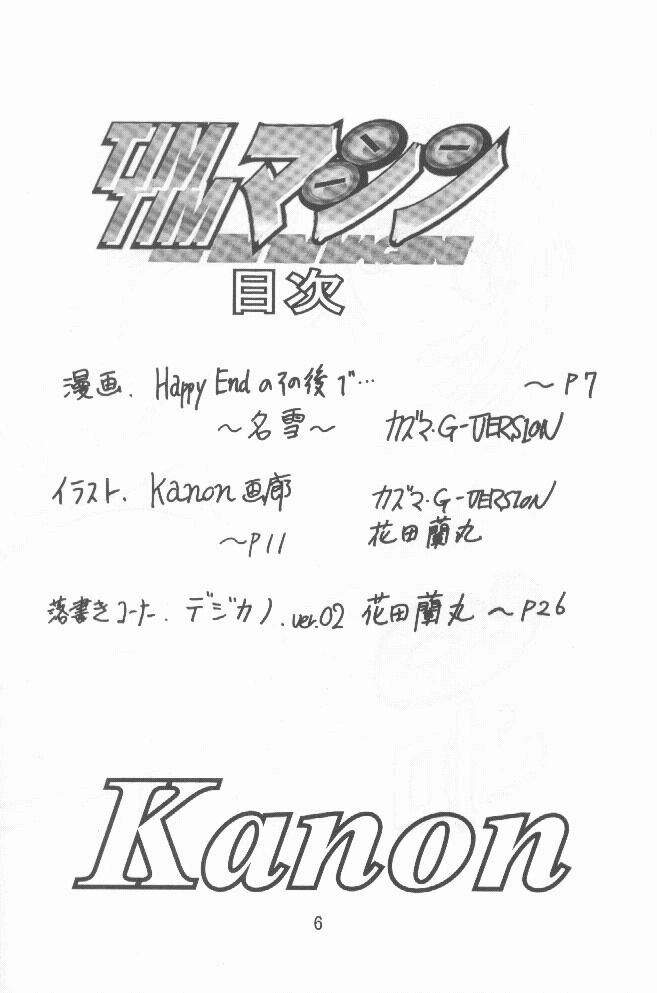 TIM TIMマシン
目次
漫画. Happy Endのその後で… ～P7
～名雪～ カズマ・G-VERSION
イラスト. Kanon画廊 カズマ・G-VERSION
～P11 花田蘭丸
落書きコーナー. デジカノ. ver.02 花田蘭丸 ～P26
Kanon
6